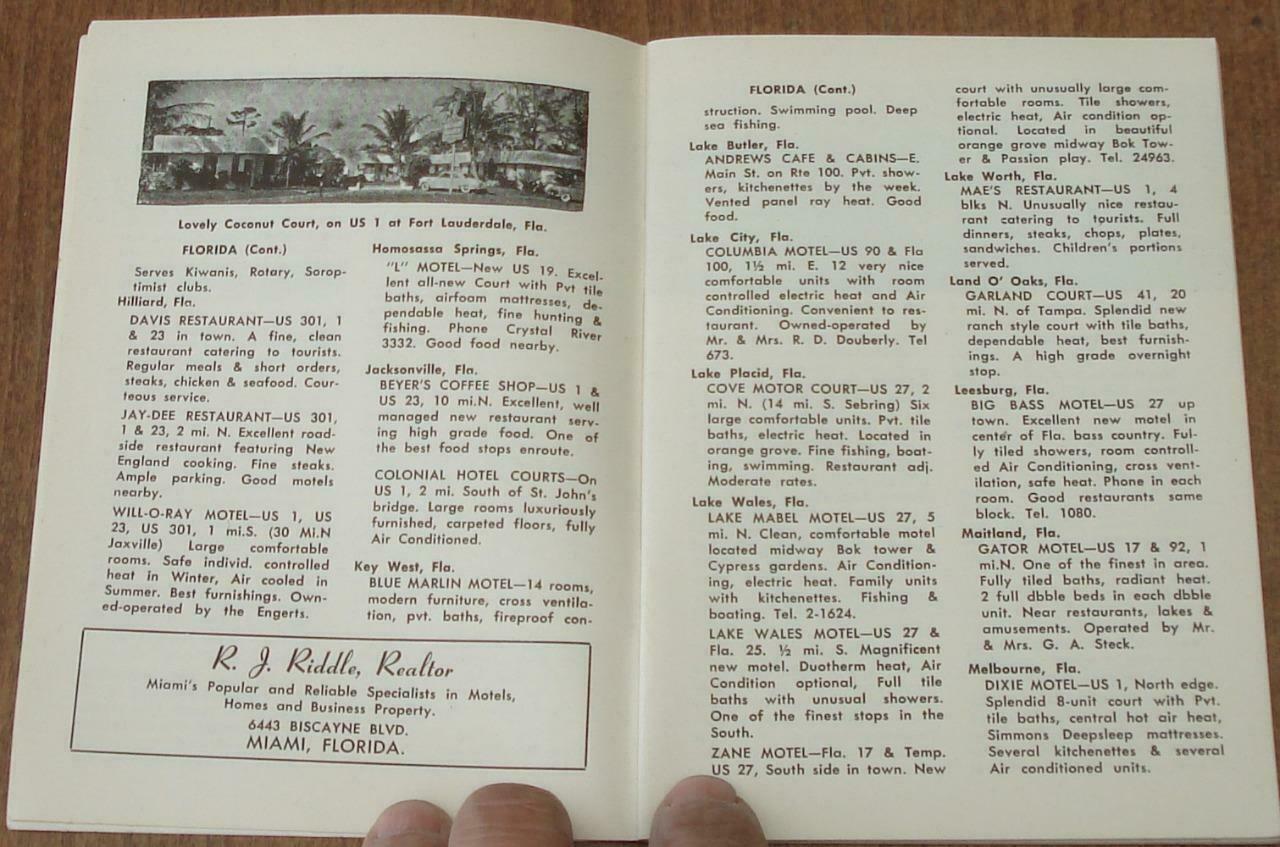 Lovely Coconut Court, on US 1 at Fort Lauderdale, Fla.
FLORIDA (Cont.)
Serves Kiwanis, Rotary, Sorop-
timist clubs.
Hilliard, Fla.
DAVIS RESTAURANT—US 301, 1
& 23 in town. A fine, clean
restaurant catering to tourists.
Regular meals & short orders,
steaks, chicken & seafood. Cour-
teous service.
JAY-DEE RESTAURANT—US 301,
1 & 23, 2 mi. N. Excellent road-
side restaurant featuring New
England cooking. Fine steaks.
Ample parking. Good motels
nearby.
WILL-O-RAY MOTEL—US 1, US
23, US 301, 1 mi.S. (30 Mi.N
Jaxville) Large comfortable
rooms. Safe individ. controlled
heat in Winter, Air cooled in
Summer. Best furnishings. Own-
ed-operated by the Engerts.
Homosassa Springs, Fla.
"L" MOTEL—New US 19. Excel-
lent all-new Court with Pvt tile
baths, airfoam mattresses, de-
pendable heat, fine hunting &
fishing. Phone Crystal River
3332. Good food nearby.
Jacksonville, Fla.
BEYER'S COFFEE SHOP—US 1 &
US 23, 10 mi.N. Excellent, well
managed new restaurant serv-
ing high grade food. One of
the best food stops enroute.
COLONIAL HOTEL COURTS—On
US 1, 2 mi. South of St. John's
bridge. Large rooms luxuriously
furnished, carpeted floors, fully
Air Conditioned.
Key West, Fla.
BLUE MARLIN MOTEL—14 rooms,
modern furniture, cross ventila-
tion, pvt. baths, fireproof con-
R. J. Riddle, Realtor
Miami's Popular and Reliable Specialists in Motels,
Homes and Business Property.
6443 BISCAYNE BLVD.
MIAMI, FLORIDA.
FLORIDA (Cont.)
struction. Swimming pool. Deep
sea fishing.
Lake Butler, Fla.
ANDREWS CAFE & CABINS—E.
Main St. on Rte 100. Pvt. show-
ers, kitchenettes by the week.
Vented panel ray heat. Good
food.
Lake City, Fla.
COLUMBIA MOTEL—US 90 & Fla
100, 1½ mi. E. 12 very nice
comfortable units with room
controlled electric heat and Air
Conditioning. Convenient to res-
taurant. Owned-operated by
Mr. & Mrs. R. D. Douberly. Tel
673.
Lake Placid, Fla.
COVE MOTOR COURT—US 27, 2
mi. N. (14 mi. S. Sebring) Six
large comfortable units. Pvt. tile
baths, electric heat. Located in
orange grove. Fine fishing, boat-
ing, swimming. Restaurant adj.
Moderate rates.
Lake Wales, Fla.
LAKE MABEL MOTEL—US 27, 5
mi. N. Clean, comfortable motel
located midway Bok tower &
Cypress gardens. Air Condition-
ing, electric heat. Family units
with kitchenettes. Fishing &
boating. Tel. 2-1624.
LAKE WALES MOTEL—US 27 &
Fla. 25. ½ mi. S. Magnificent
new motel. Duotherm heat, Air
Condition optional, Full tile
baths with unusual showers.
One of the finest stops in the
South.
ZANE MOTEL—Fla. 17 & Temp.
US 27, South side in town. New
court with unusually large com-
fortable rooms. Tile showers,
electric heat, Air condition op-
tional. Located in beautiful
orange grove midway Bok Tow-
er & Passion play. Tel. 24963.
Lake Worth, Fla.
MAE'S RESTAURANT—US 1, 4
blks N. Unusually nice restau-
rant catering to tourists. Full
dinners, steaks, chops, plates,
sandwiches. Children's portions
served.
Land O' Oaks, Fla.
GARLAND COURT—US 41, 20
mi. N. of Tampa. Splendid new
ranch style court with tile baths,
dependable heat, best furnish-
ings. A high grade overnight
stop.
Leesburg, Fla.
BIG BASS MOTEL—US 27 up
town. Excellent new motel in
center of Fla. bass country. Ful-
ly tiled showers, room controll-
ed Air Conditioning, cross vent-
ilation, safe heat. Phone in each
room. Good restaurants same
block. Tel. 1080.
Maitland, Fla.
GATOR MOTEL—US 17 & 92, 1
mi.N. One of the finest in area.
Fully tiled baths, radiant heat.
2 full dbble beds in each dbble
unit. Near restaurants, lakes &
amusements. Operated by Mr.
& Mrs. G. A. Steck.
Melbourne, Fla.
DIXIE MOTEL—US 1, North edge.
Splendid 8-unit court with Pvt.
tile baths, central hot air heat,
Simmons Deepsleep mattresses.
Several kitchenettes & several
Air conditioned units.